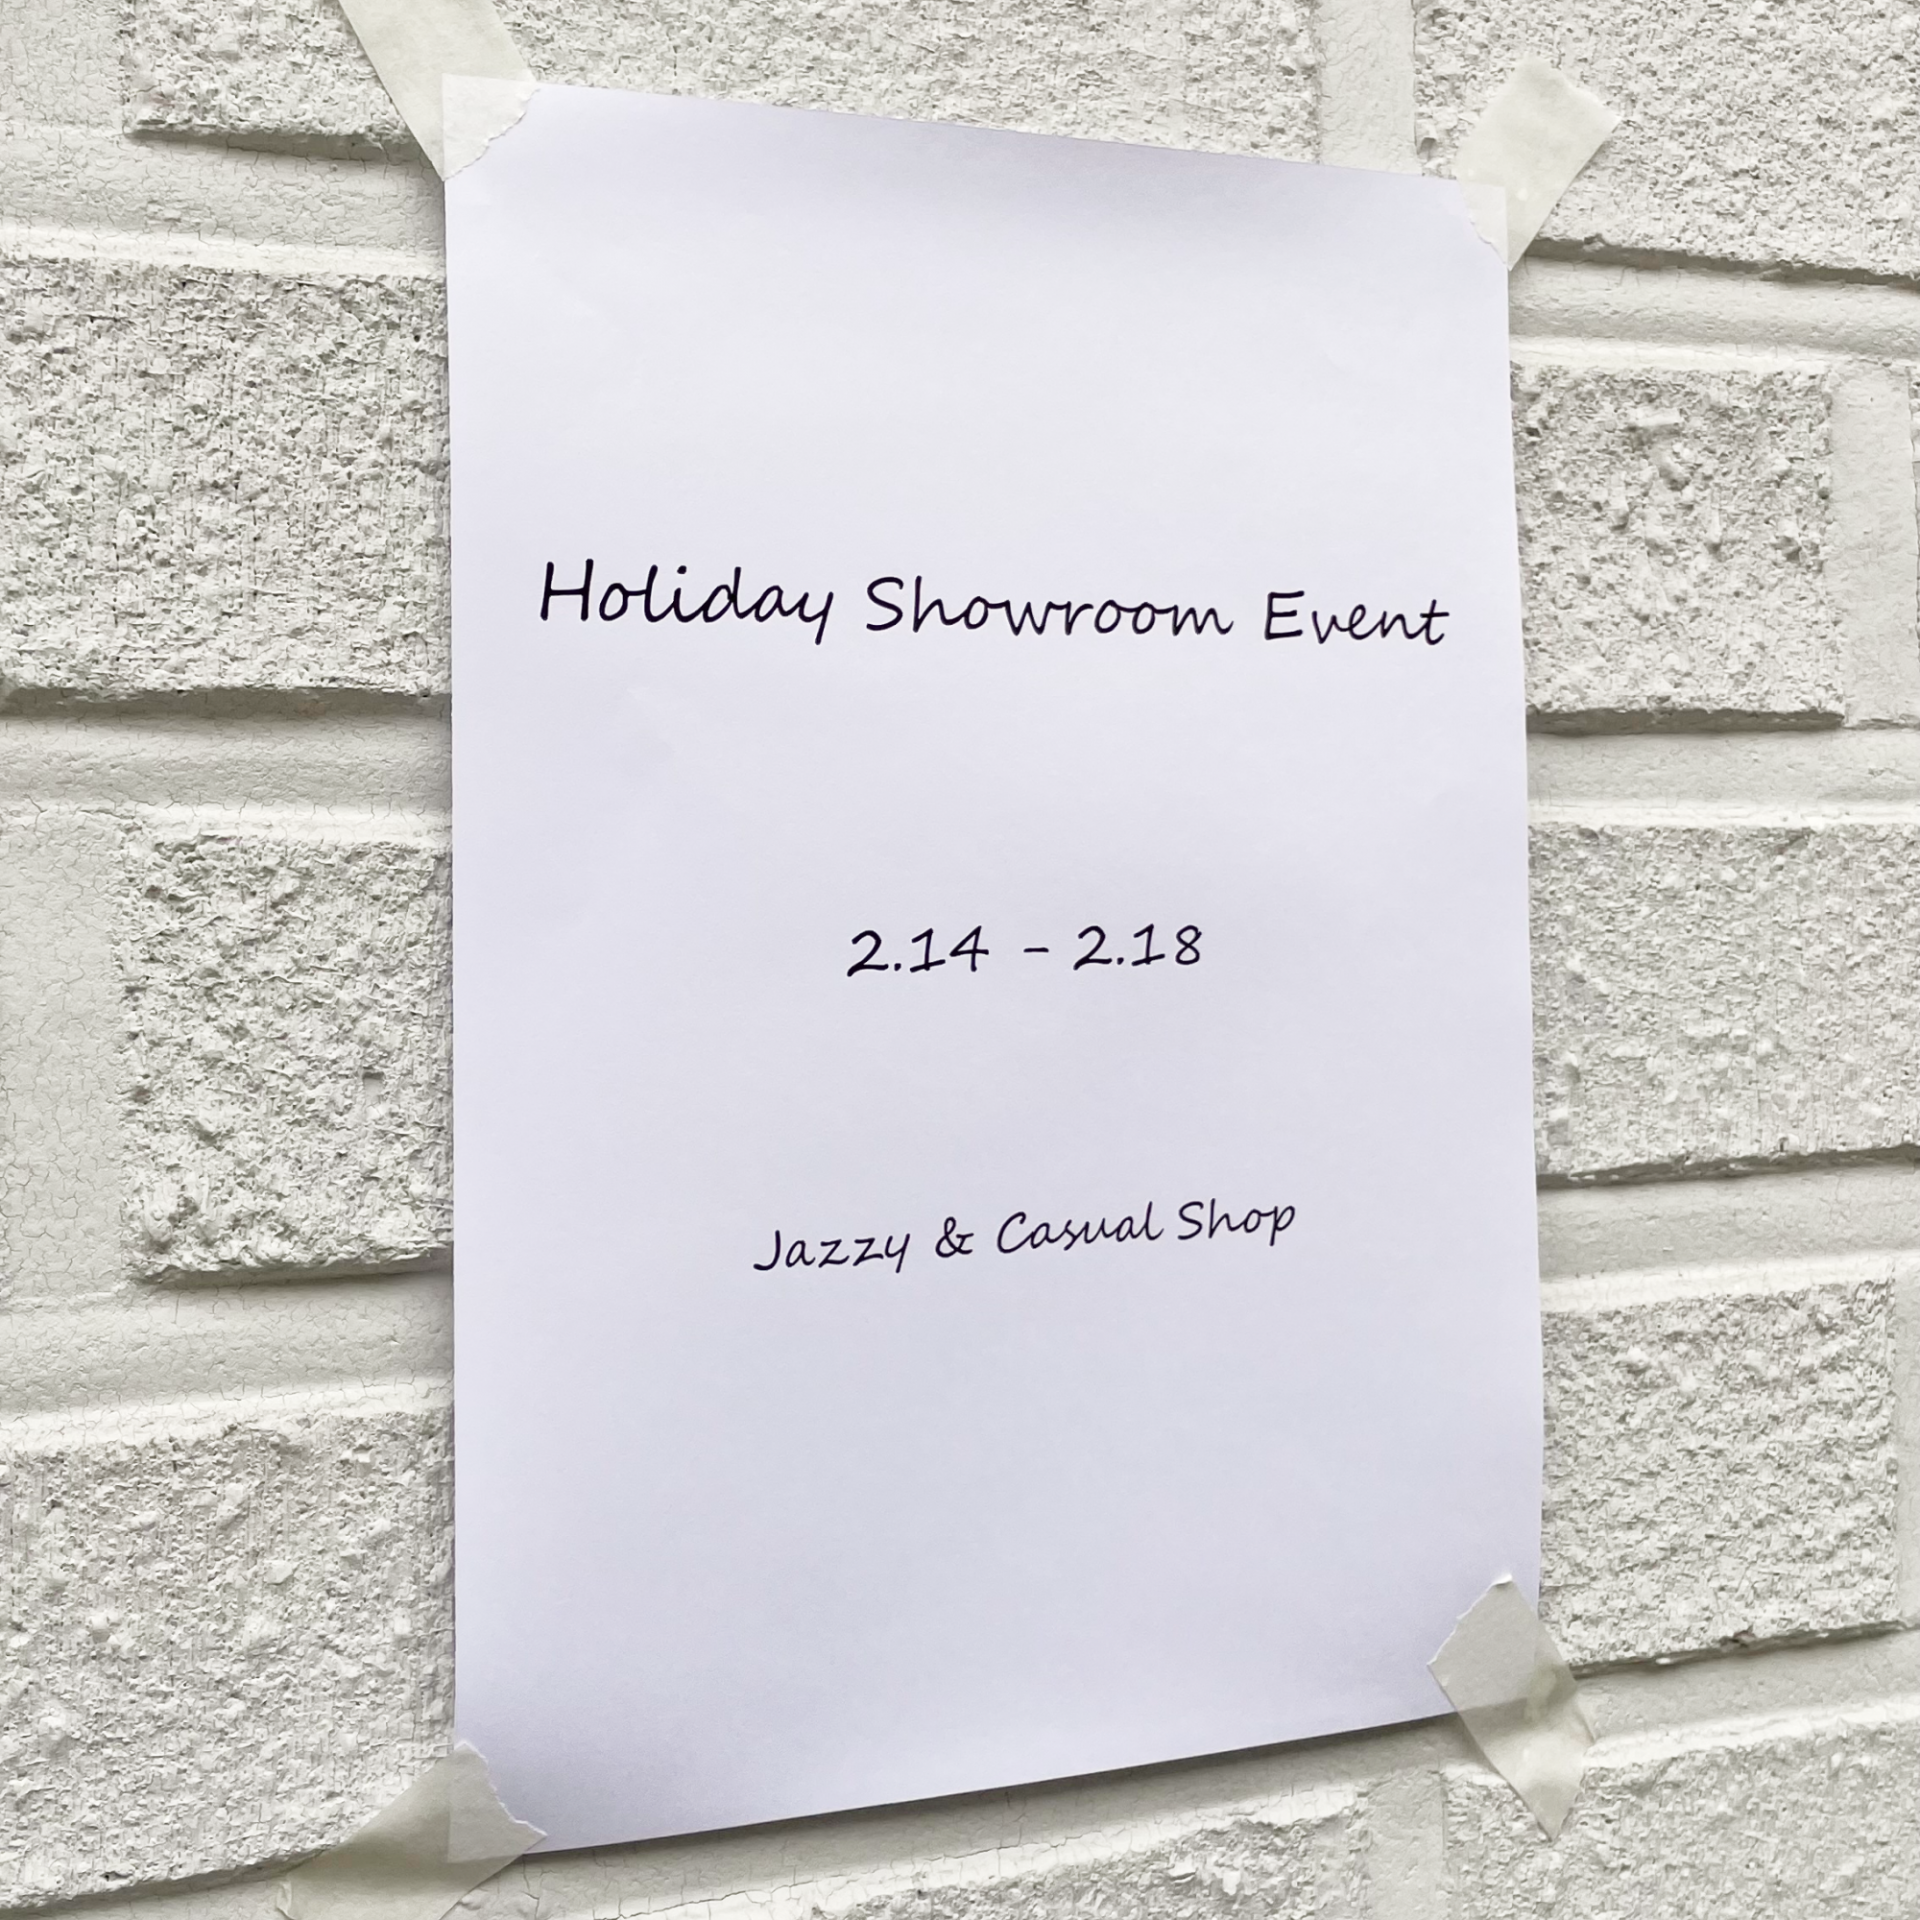 Holiday Showroom Event
2.14 - 2.18
Jazzy & Casual Shop